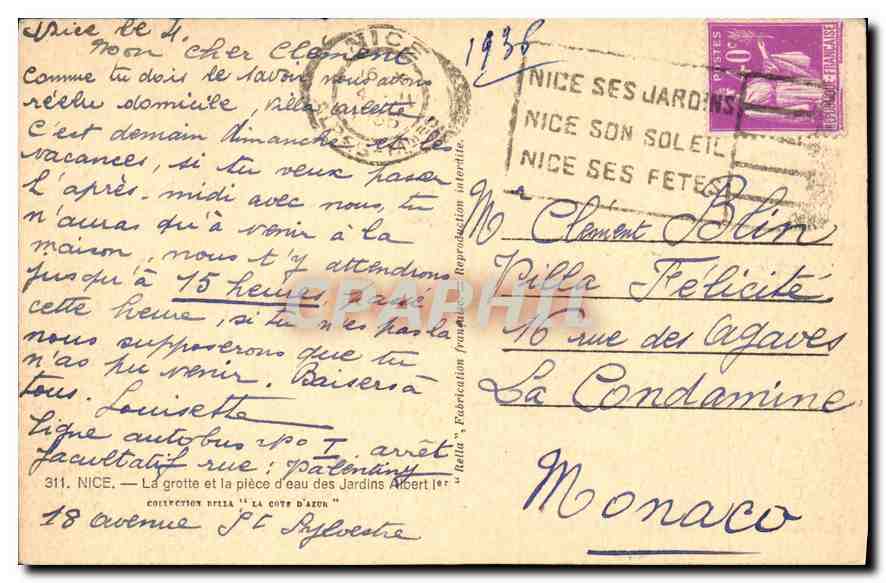 Nice le 4.
Mon cher Clément
Comme tu dois le savoir nous avons
réélu domicile, villa Carlette
C'est demain dimanche et les
vacances, si tu veux passer
l'après-midi avec nous, tu
n'auras qu'à venir à la
maison, nous t'y attendrons
jusqu'à 15 heures, passé
cette heure, si tu n'es pas là
nous supposerons que tu
n'as pu venir. Baisers à
tous. Louisette
Ligne autobus n° I. arrêt
facultatif rue: Valentiny
311. NICE. — La grotte et la pièce d'eau des Jardins Albert Ier
COLLECTION RELLA "LA COTE D'AZUR"
18 avenue St Sylvestre
"Rella", Fabrication française, Reproduction interdite.
NICE
1938
NICE SES JARDINS
NICE SON SOLEIL
NICE SES FETES
POSTES
REPUBLIQUE FRANCAISE
Mr Clément Blin
Villa Félicité
16 rue des Agaves
La Condamine
Monaco
CPAPHIL